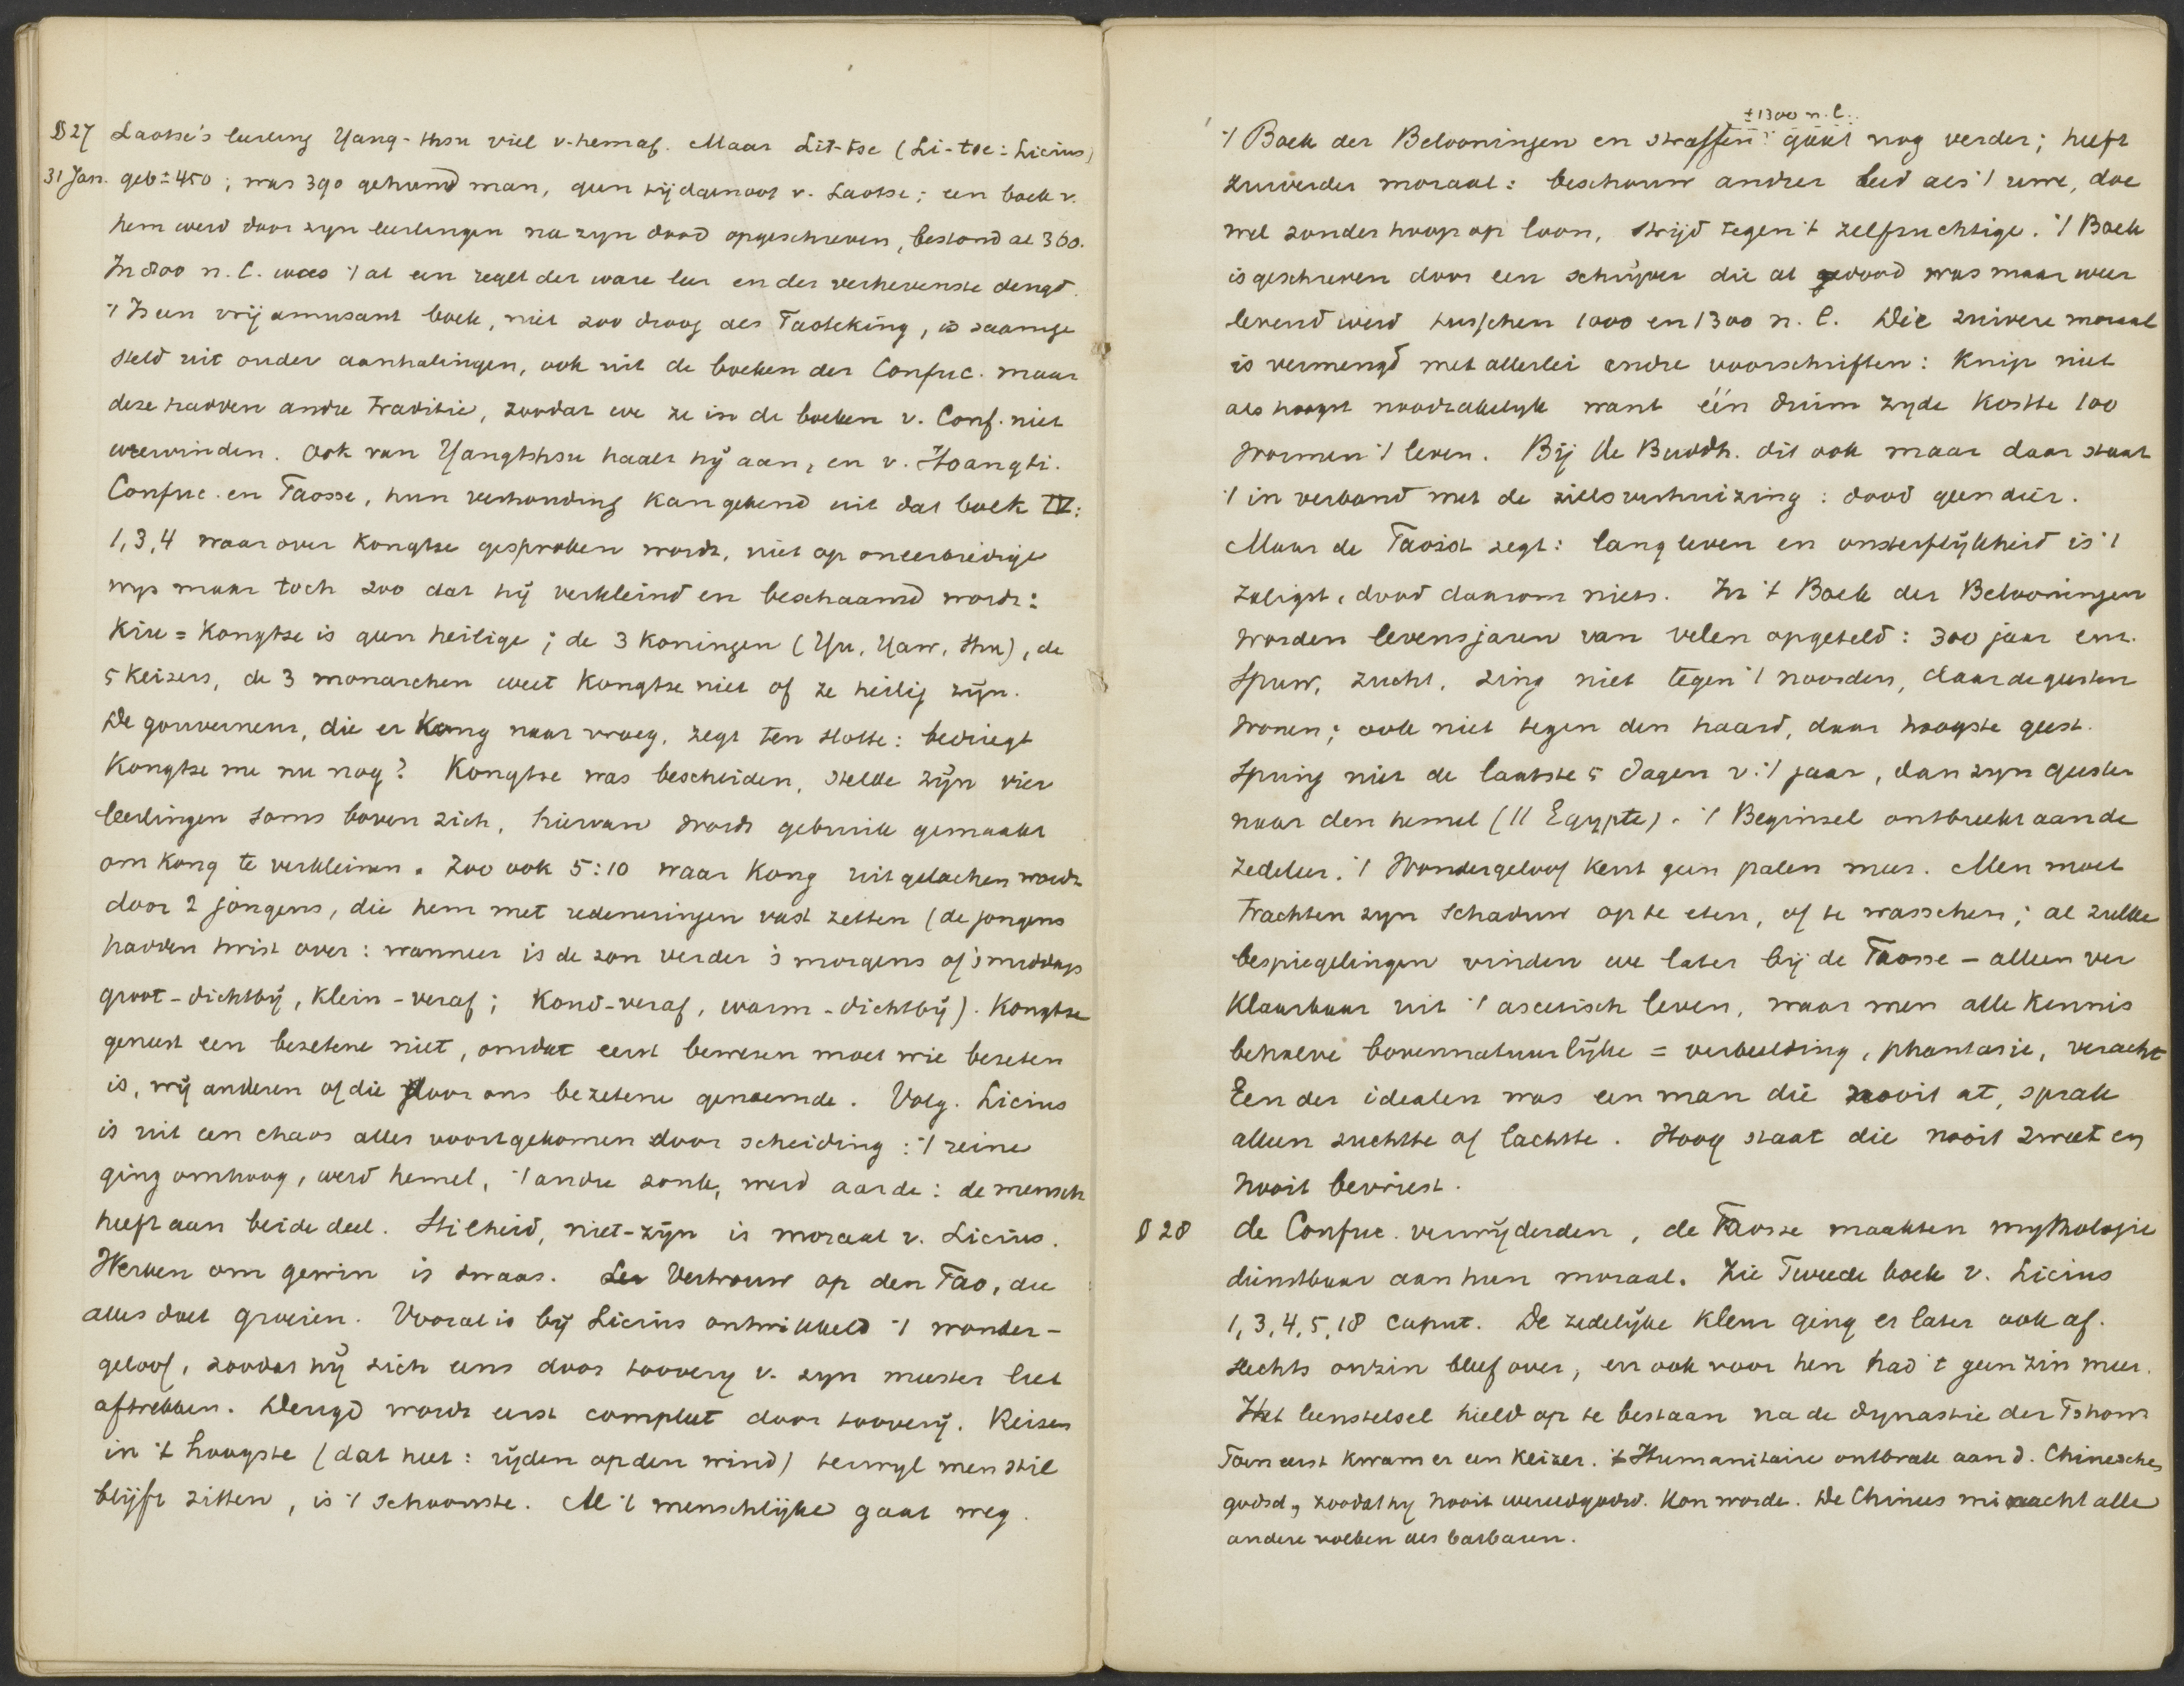 §27 Laotse's leerling Yang-thsu viel v. hem af. Maar Lit-tse (Li-tse: Licius)
31 Jan. geb ± 450; was 390 gehuwd man, geen tijdgenoot v. Laotse; een boek v.
hem werd door zyn leerlingen na zyn dood opgeschreven, bestond al 360.
In 800 n. C. was 't al een regel der ware leer en der verhevenste deugd.
't Is een vrij amusant boek, niet zoo droog als Taoteking, is saamge
steld uit ouder aanhalingen, ook uit de boeken der Confuc. maar
deze hadden andre traditie, zoodat we ze in de boeken v. Conf. niet
weervinden. Ook van Yangthsu haalt hij aan, en v. Hoangti.
Confuc. en Taosse, hun verhouding kan gekend uit dat boek IV:
1, 3, 4 waar over Kongtse gesproken wordt, niet op oneerbiedige
wys maar toch zoo dat hij verkleind en beschaamd wordt:
Kiu = Kongtse is geen heilige; de 3 koningen (Yu, Yaw, thu), de
5 keizers, de 3 monarchen weet Kongtse niet of ze heilig zijn.
De gouverneur, die er Kong naar vroeg, zegt ten slotte: bedriegt
Kongtse me nu nog? Kongtse was bescheiden, stelde zijn vier
leerlingen soms boven zich, hiervan wordt gebruik gemaakt
om Kong te verkleinen. Zoo ook 5:10 waar Kong uitgelachen wordt
door 2 jongens, die hem met redeneringen vast zetten (de jongens
hadden twist over: wanneer is de zon verder 's morgens of 's middags
groot - dichtbij, klein - veraf; koud - veraf, warm - dichtbij). Kongtse
geneest een bezetene niet, omdat eerst bewezen moet wie bezeten
is, wij anderen of die door ons bezetene genoemde. Volg. Licius
is uit een chaos alles voortgekomen door scheiding: 't reine
ging omhoog, werd hemel, 't andre zonk, werd aarde: de mensch
heeft aan beide deel. Stilheid, niet-zijn is moraal v. Licius.
Werken om gewin is dwaas. Vertrouw op den Tao, die
alles doet groeien. Vooral is bij Licius ontwikkeld 't wonder-
geloof, zoodat hij zich eens door toovery v. zyn meester liet
aftrekken. Deugd wordt eerst compleet door tooverij. Reizen
in 't hoogste (dat heet: rijden op den wind) terwyl men stil
blijft zitten, is 't schoonste. Al 't menschlijke gaat weg.
± 1300 n. C.
't Boek der Belooningen en straffen gaat nog verder; heeft
zuiverder moraal: beschouw andrer leed als 't uwe, doe
wel zonder hoop op loon, strijd tegen 't zelfzuchtige. 't Boek
is geschreven door een schrijver die al gedood was maar weer
levend werd tusschen 1000 en 1300 n. C. Die zuivere moraal
is vermengd met allerlei andre voorschriften: Knip niet
als hoogst noodzakelyk want één duim zyde kostte 100
wormen 't leven. Bij de Buddh. dit ook maar daar staat
't in verband met de zielsverhuizing: dood geen dier.
Maar de Taoïst zegt: lang leven en onsterflijkheid is 't
zaligst, dood daarom niets. In 't Boek der Belooningen
worden levensjaren van velen opgeteld: 300 jaar enz.
Spuw, zucht, zing niet tegen 't noorden, daar de geesten
wonen; ook niet tegen den haard, daar hoogste geest.
Spring niet de laatste 5 dagen v. 't jaar, dan zyn geesten
naar den hemel (// Egypte). 't Beginsel ontbreekt aan de
zedeleer. 't Wondergeloof kent geen palen meer. Men moet
trachten zyn schaduw op te eten, of te wasschen; al zulke
bespiegelingen vinden we later bij de Taosse - alleen ver
klaarbaar uit 't ascetisch leven, waar men alle kennis
behalve bovennatuurlijke = verbeelding, phantasie, veracht
Een der idealen was een man die nooit at, sprak
alleen zuchtte of lachtte. Hoog staat die nooit zweet en
nooit bevriest.
§28 de Confuc. verwijderden, de Taosse maakten mythologie
dienstbaar aan hun moraal. Zie Tweede boek v. Licius
1, 3, 4, 5, 18 caput. De zedelijke kleur ging er later ook af.
Slechts onzin bleef over, en ook voor hen had 't geen zin meer.
Het leenstelsel hield op te bestaan na de dynastie der Tshow
Toen eerst kwam er een keizer. 't Humanitaire ontbrak aan d. Chinesche
godsd, zoodat hy nooit wereldgodsd. kon worde. De Chinees minacht alle
andere volken als barbaren.